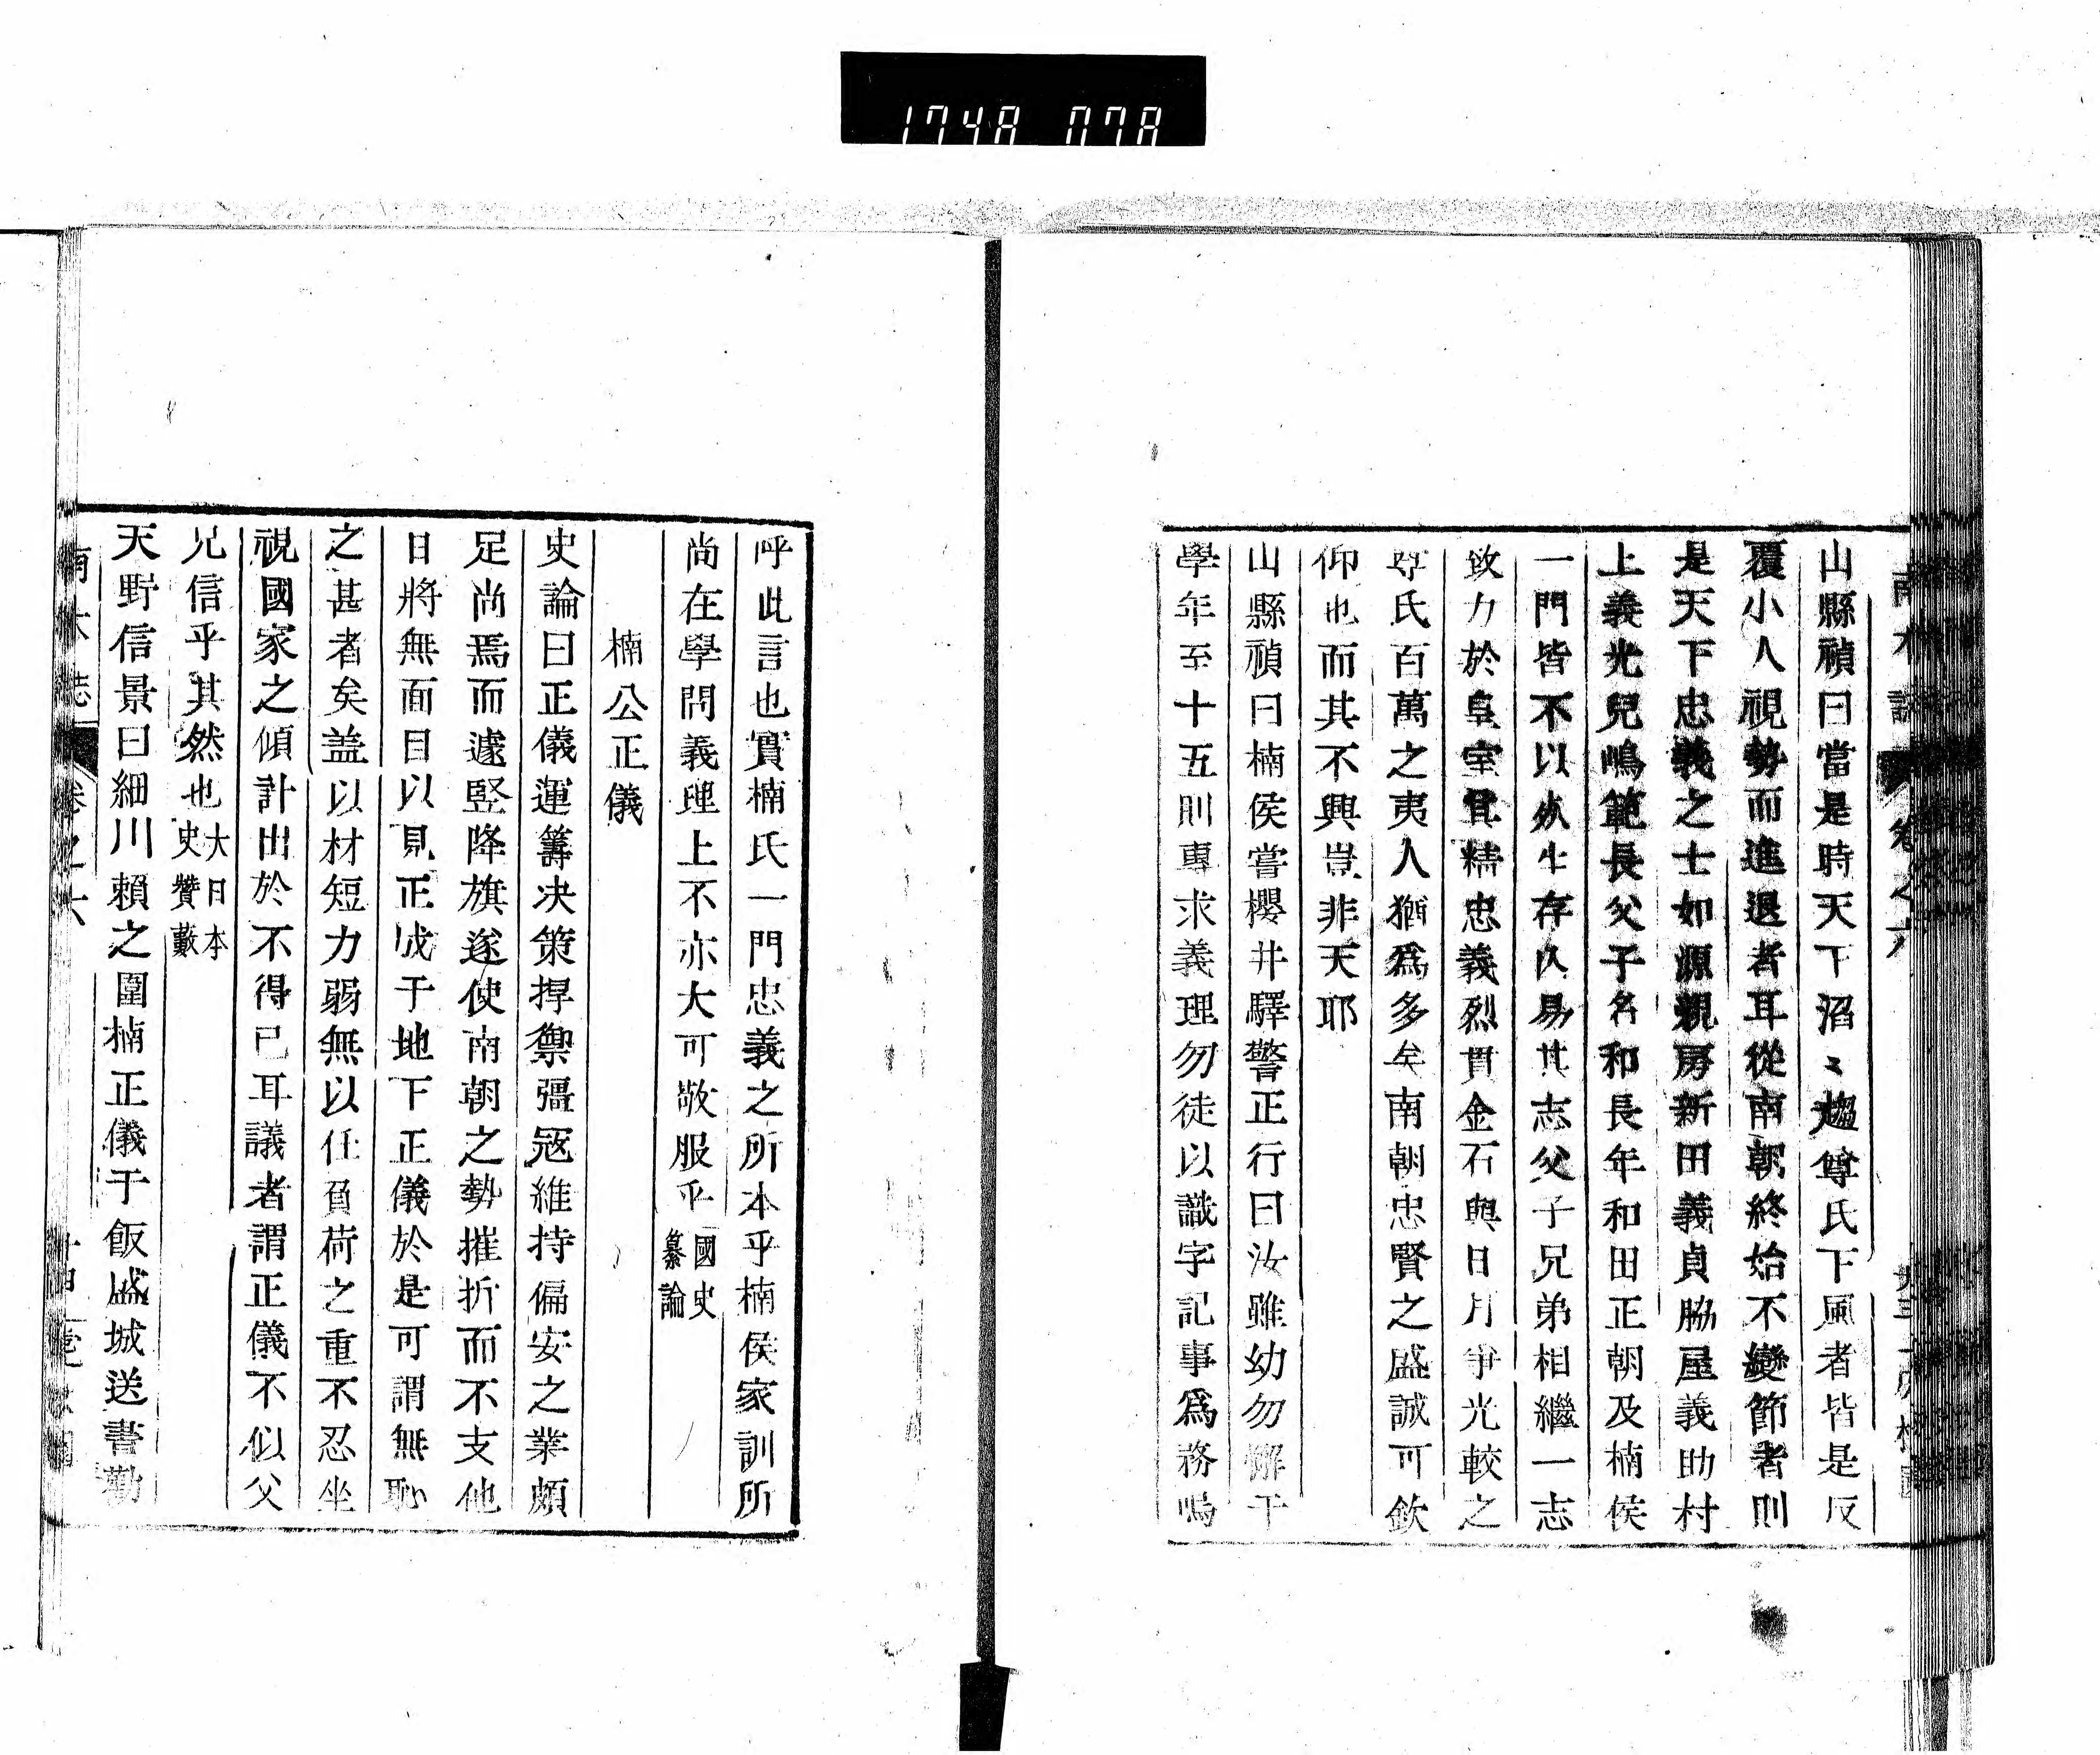 1748 078
南木誌 卷之六
山縣禎曰當是時天下滔〻趨尊氏下風者皆是反
覆小人視勢而進退者耳從南朝終始不變節者則
是天下忠義之士如源親房新田義貞脇屋義助村
上義光兒嶋範長父子名和長年和田正朝及楠侯
一門皆不以死生存亡易其志父子兄弟相繼一志
致力於皇室其精忠義烈貫金石與日月爭光較之
尊氏百萬之夷人猶爲多矣南朝忠賢之盛誠可欽
仰也而其不興豈非天耶
山縣禎曰楠侯嘗櫻井驛警正行曰汝雖幼勿懈于
學年至十五則專求義理勿徒以識字記事爲務嗚
呼此言也實楠氏一門忠義之所本乎楠侯家訓所
尚在學問義理上不亦大可敬服乎國史纂論
楠公正儀
史論曰正儀運籌决策捍禦彊冦維持偏安之業頗
足尚焉而遽竪降旗遂使南朝之勢摧折而不支他
日將無面目以見正成于地下正儀於是可謂無恥
之甚者矣盖以材短力弱無以任負荷之重不忍坐
視國家之傾計出於不得已耳議者謂正儀不似父
兄信乎其然也大日本史贊藪
天野信景曰細川賴之圍楠正儀于飯盛城送書勸
南木誌 卷之六